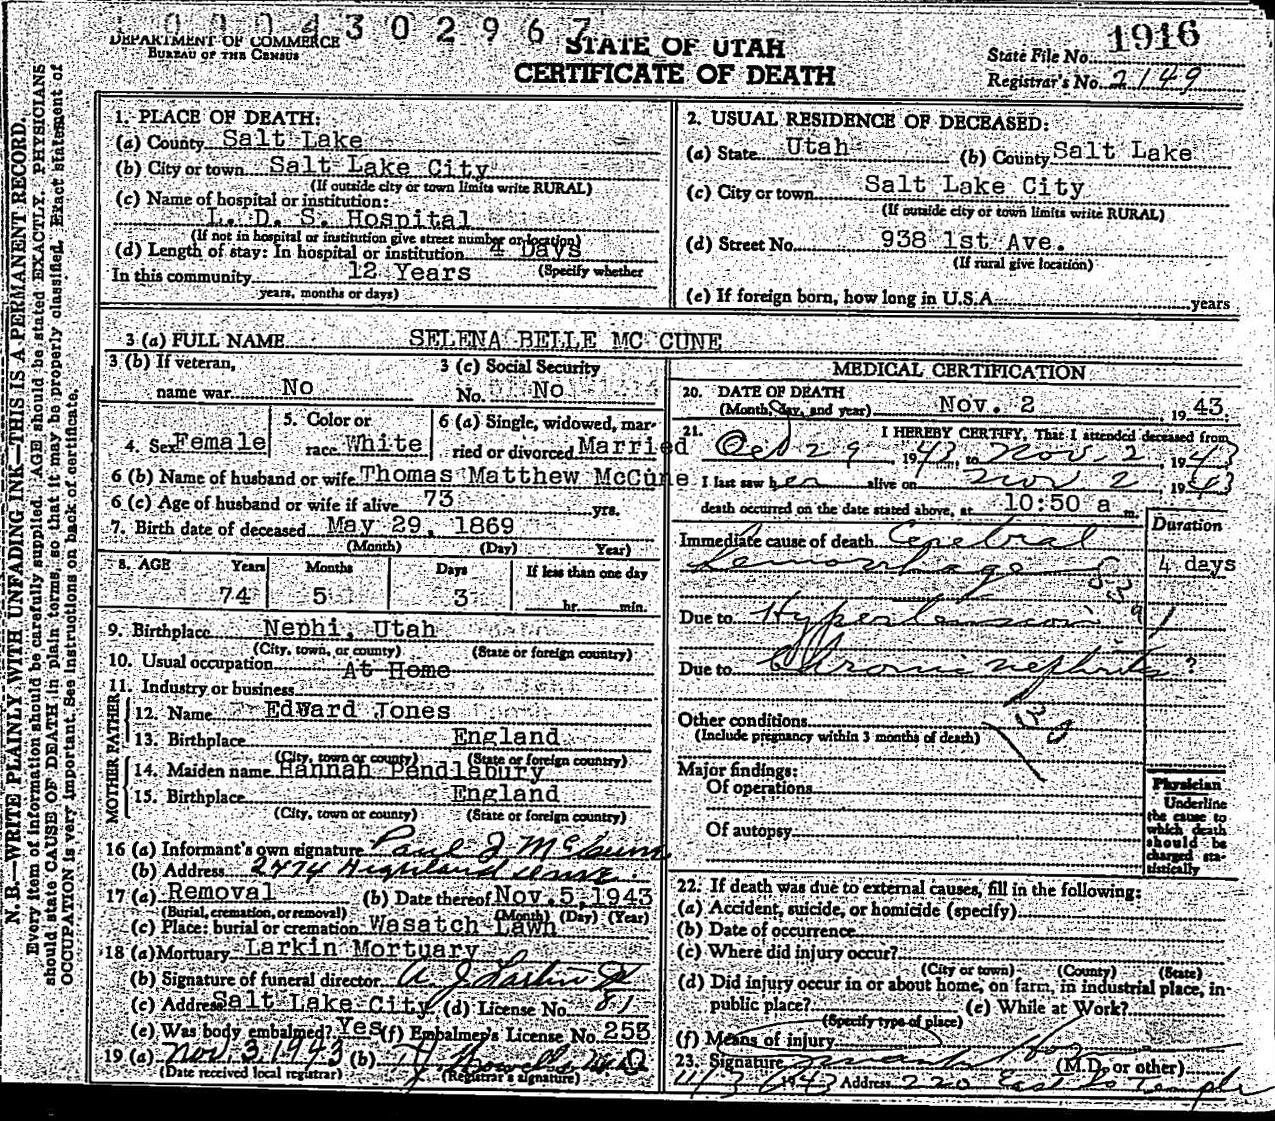 0004302967
DEPARTMENT OF COMMERCE
BUREAU OF THE CENSUS
STATE OF UTAH
CERTIFICATE OF DEATH
State File No. 1916
Registrar's No. 2149
N.B.—WRITE PLAINLY WITH UNFADING INK—THIS IS A PERMANENT RECORD.
Every item of information should be carefully supplied. AGE should be stated EXACTLY. PHYSICIANS
should state CAUSE OF DEATH in plain terms, so that it may be properly classified. Exact statement of
OCCUPATION is very important. See instructions on back of certificate.
1. PLACE OF DEATH:
(a) County Salt Lake
(b) City or town Salt Lake City
(If outside city or town limits write RURAL)
(c) Name of hospital or institution:
L. D. S. Hospital
(If not in hospital or institution give street number or location)
(d) Length of stay: In hospital or institution 4 Days
In this community 12 Years (Specify whether
years, months or days)
2. USUAL RESIDENCE OF DECEASED:
(a) State Utah (b) County Salt Lake
(c) City or town Salt Lake City
(If outside city or town limits write RURAL)
(d) Street No. 938 1st Ave.
(If rural give location)
(e) If foreign born, how long in U.S.A. years
3 (a) FULL NAME SELENA BELLE MC CUNE
3 (b) If veteran,
name war No
3 (c) Social Security
No. No
4. Sex Female
5. Color or
race White
6 (a) Single, widowed, mar-
ried or divorced Married
6 (b) Name of husband or wife Thomas Matthew McCune
6 (c) Age of husband or wife if alive 73 yrs.
7. Birth date of deceased May 29, 1869
(Month) (Day) Year)
8. AGE Years Months Days If less than one day
74 5 3 hr. min.
9. Birthplace Nephi, Utah
(City, town, or county) (State or foreign country)
10. Usual occupation At Home
11. Industry or business
FATHER
12. Name Edward Jones
13. Birthplace England
(City, town or county) (State or foreign country)
MOTHER
14. Maiden name Hannah Pendlebury
15. Birthplace England
(City, town or county) (State or foreign country)
16 (a) Informant's own signature Paul J McCune
(b) Address 2474 Highland Drive
17 (a) Removal (b) Date thereof Nov. 5, 1943
(Burial, cremation, or removal) (Month) (Day) (Year)
(c) Place: burial or cremation Wasatch Lawn
18 (a) Mortuary Larkin Mortuary
(b) Signature of funeral director A J Larkin Jr
(c) Address Salt Lake City (d) License No. 81
(e) Was body embalmed? Yes (f) Embalmer's License No. 255
19 (a) Nov. 3, 1943 (b)
(Date received local registrar) (Registrar's signature)
MEDICAL CERTIFICATION
20. DATE OF DEATH
(Month, day, and year) Nov. 2, 1943
21. I HEREBY CERTIFY, That I attended deceased from
Oct 29 1943, to Nov. 2, 1943
I last saw her alive on Nov 2, 1943
death occurred on the date stated above, at 10:50 a m.
Duration
Immediate cause of death Cerebral
hemorrhage 4 days
83a
Due to Hypertension
Due to Chronic nephritis ?
Other conditions
(Include pregnancy within 3 months of death)
Major findings:
Of operations
Of autopsy
Physician
Underline
the cause to
which death
should be
charged sta-
tistically
22. If death was due to external causes, fill in the following:
(a) Accident, suicide, or homicide (specify)
(b) Date of occurrence
(c) Where did injury occur?
(City or town) (County) (State)
(d) Did injury occur in or about home, on farm, in industrial place, in-
public place? (e) While at Work?
(Specify type of place)
(f) Means of injury
23. Signature (M.D. or other)
11/3 1943 Address 220 East So Temple